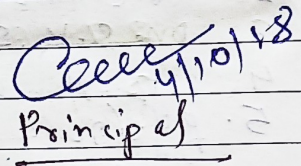 4/10/18
Principal